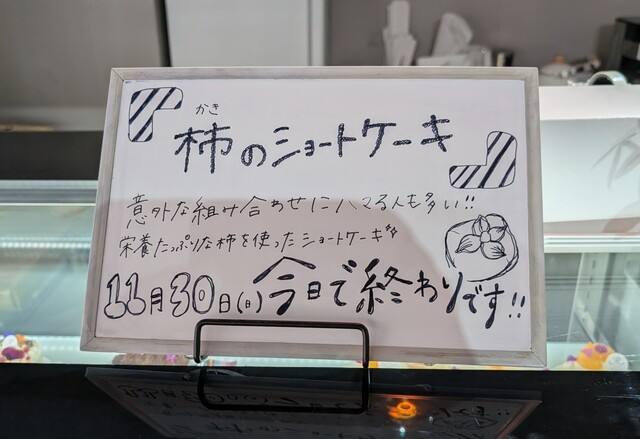 かき
柿のショートケーキ
意外な組み合わせにハマる人も多い!!
栄養たっぷりな柿を使ったショートケーキ
11月30日(日)今日で終わりです!!